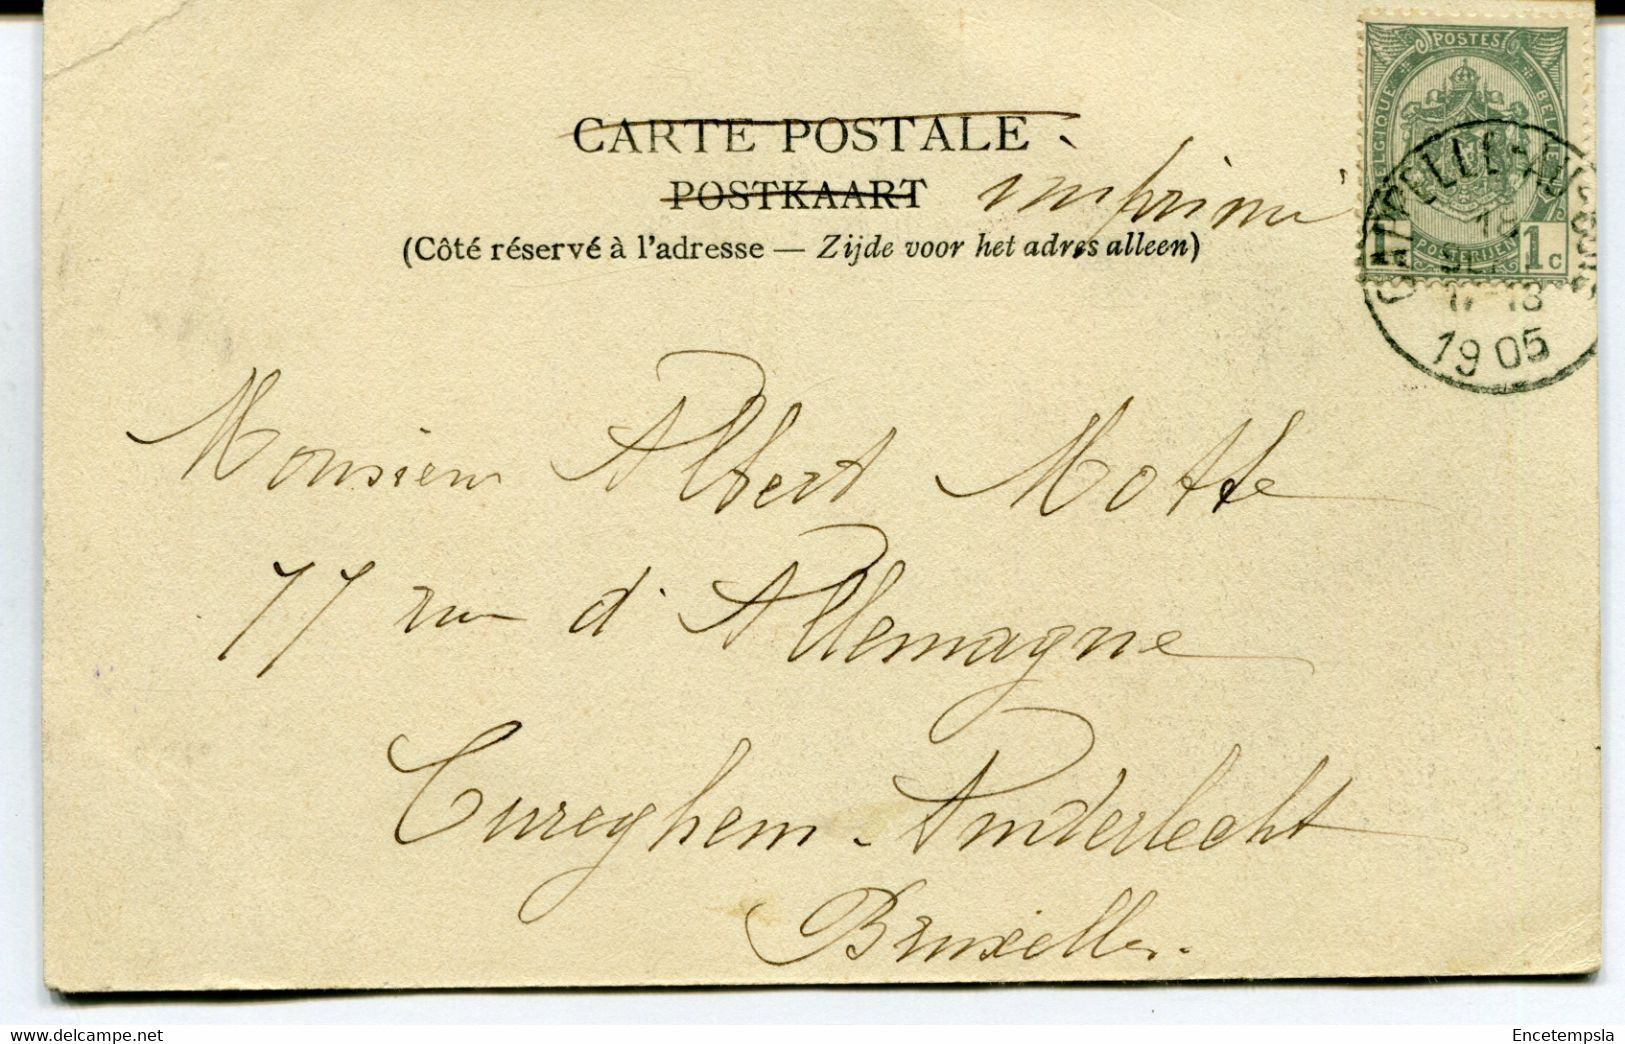 CARTE POSTALE
POSTKAART imprimé
(Côté réservé à l'adresse — Zijde voor het adres alleen)
POSTES
BELGIQUE
BELGIE
POSTERIJEN
1c
18
17-18
1905
Monsieur Albert Motte
77 rue d'Allemagne
Cureghem - Anderlecht
Bruxelles.
delcampe.net
Encetempsla